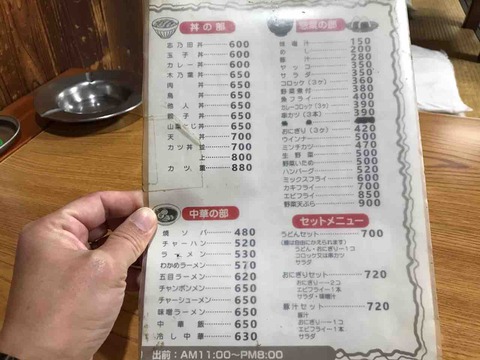 丼の部
志乃田丼 600
玉子丼 600
カレー丼 600
木乃葉丼 650
肉丼 650
鳥丼 650
他人丼 650
餃子丼 650
山菜とじ丼 650
天丼 700
カツ丼並 700
上 800
カツ重 880
中華の部
焼ソバ 480
チャーハン 520
ラーメン 530
わかめラーメン 570
五目ラーメン 620
チャンポンメン 650
チャーシューメン 650
味噌ラーメン 650
中華飯 650
冷し中華 630
惣菜の部
味噌汁 150
めし 200
豚汁 280
ヤッコ 350
サラダ 350
コロッケ(3ケ) 360
野菜煮付 380
魚フライ 390
カレーコロッケ(3ケ) 390
串カツ(3本) 390
おにぎり(3ケ) 420
ウインナー 500
ミンチカツ 470
生野菜 500
野菜いため 500
ハンバーグ 520
ミックスフライ 600
カキフライ 700
エビフライ 850
野菜天ぷら 900
セットメニュー
うどんセット 700
(麺は自由にかえられます)
うどん・おにぎり…1ケ
コロッケ又は串カツ
サラダ
おにぎりセット 720
おにぎり…2コ
エビフライ…1本
サラダ・味噌汁
豚汁セット 720
豚汁
おにぎり…1コ
エビフライ…1本
サラダ
出前:AM11:00~PM8:00